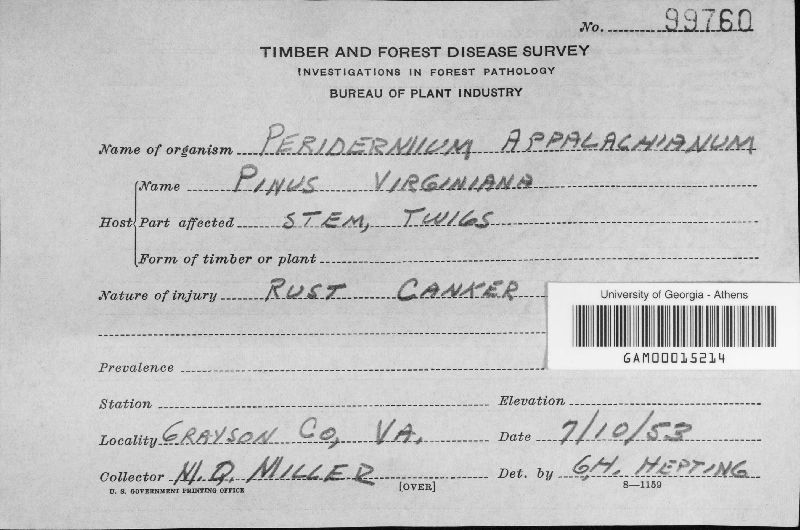 No. 99760
TIMBER AND FOREST DISEASE SURVEY
INVESTIGATIONS IN FOREST PATHOLOGY
BUREAU OF PLANT INDUSTRY
Name of organism PERIDERMIUM APPALACHIANUM
Host Name PINUS VIRGINIANA
Part affected STEM, TWIGS
Form of timber or plant
Nature of injury RUST CANKER
University of Georgia - Athens
GAM00015214
Prevalence
Station Elevation
Locality GRAYSON CO, VA. Date 7/10/53
Collector M.D. MILLER Det. by G.H. HEPTING
U. S. GOVERNMENT PRINTING OFFICE [OVER] 8—1159